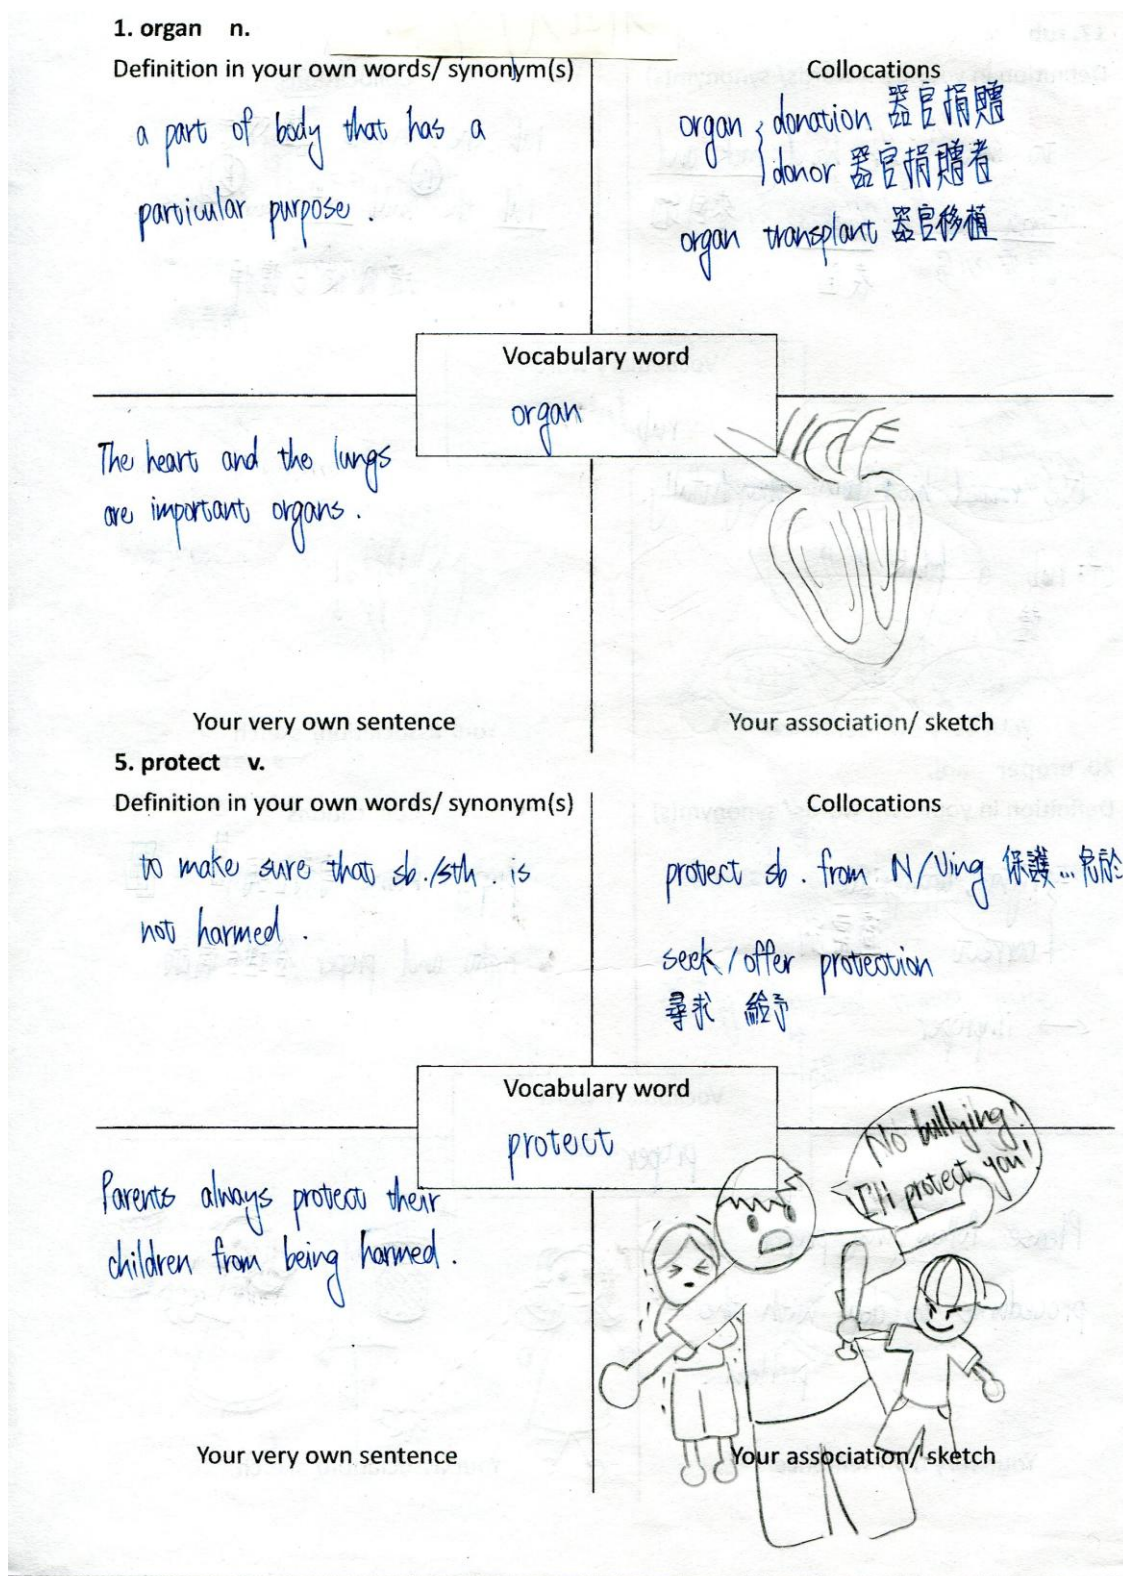 1. organ n.
Definition in your own words/ synonym(s)
Collocations
a part of body that has a
particular purpose .
organ { donation 器官捐贈
donor 器官捐贈者
organ transplant 器官移植
Vocabulary word
organ
The heart and the lungs
are important organs .
Your very own sentence
Your association/ sketch
5. protect v.
Definition in your own words/ synonym(s)
Collocations
to make sure that sb./sth . is
not harmed .
protect sb . from N/Ving 保護...免於
seek / offer protection
尋求 給予
Vocabulary word
protect
Parents always protect their
children from being harmed .
No bullying!
I'll protect you!
Your very own sentence
Your association/ sketch